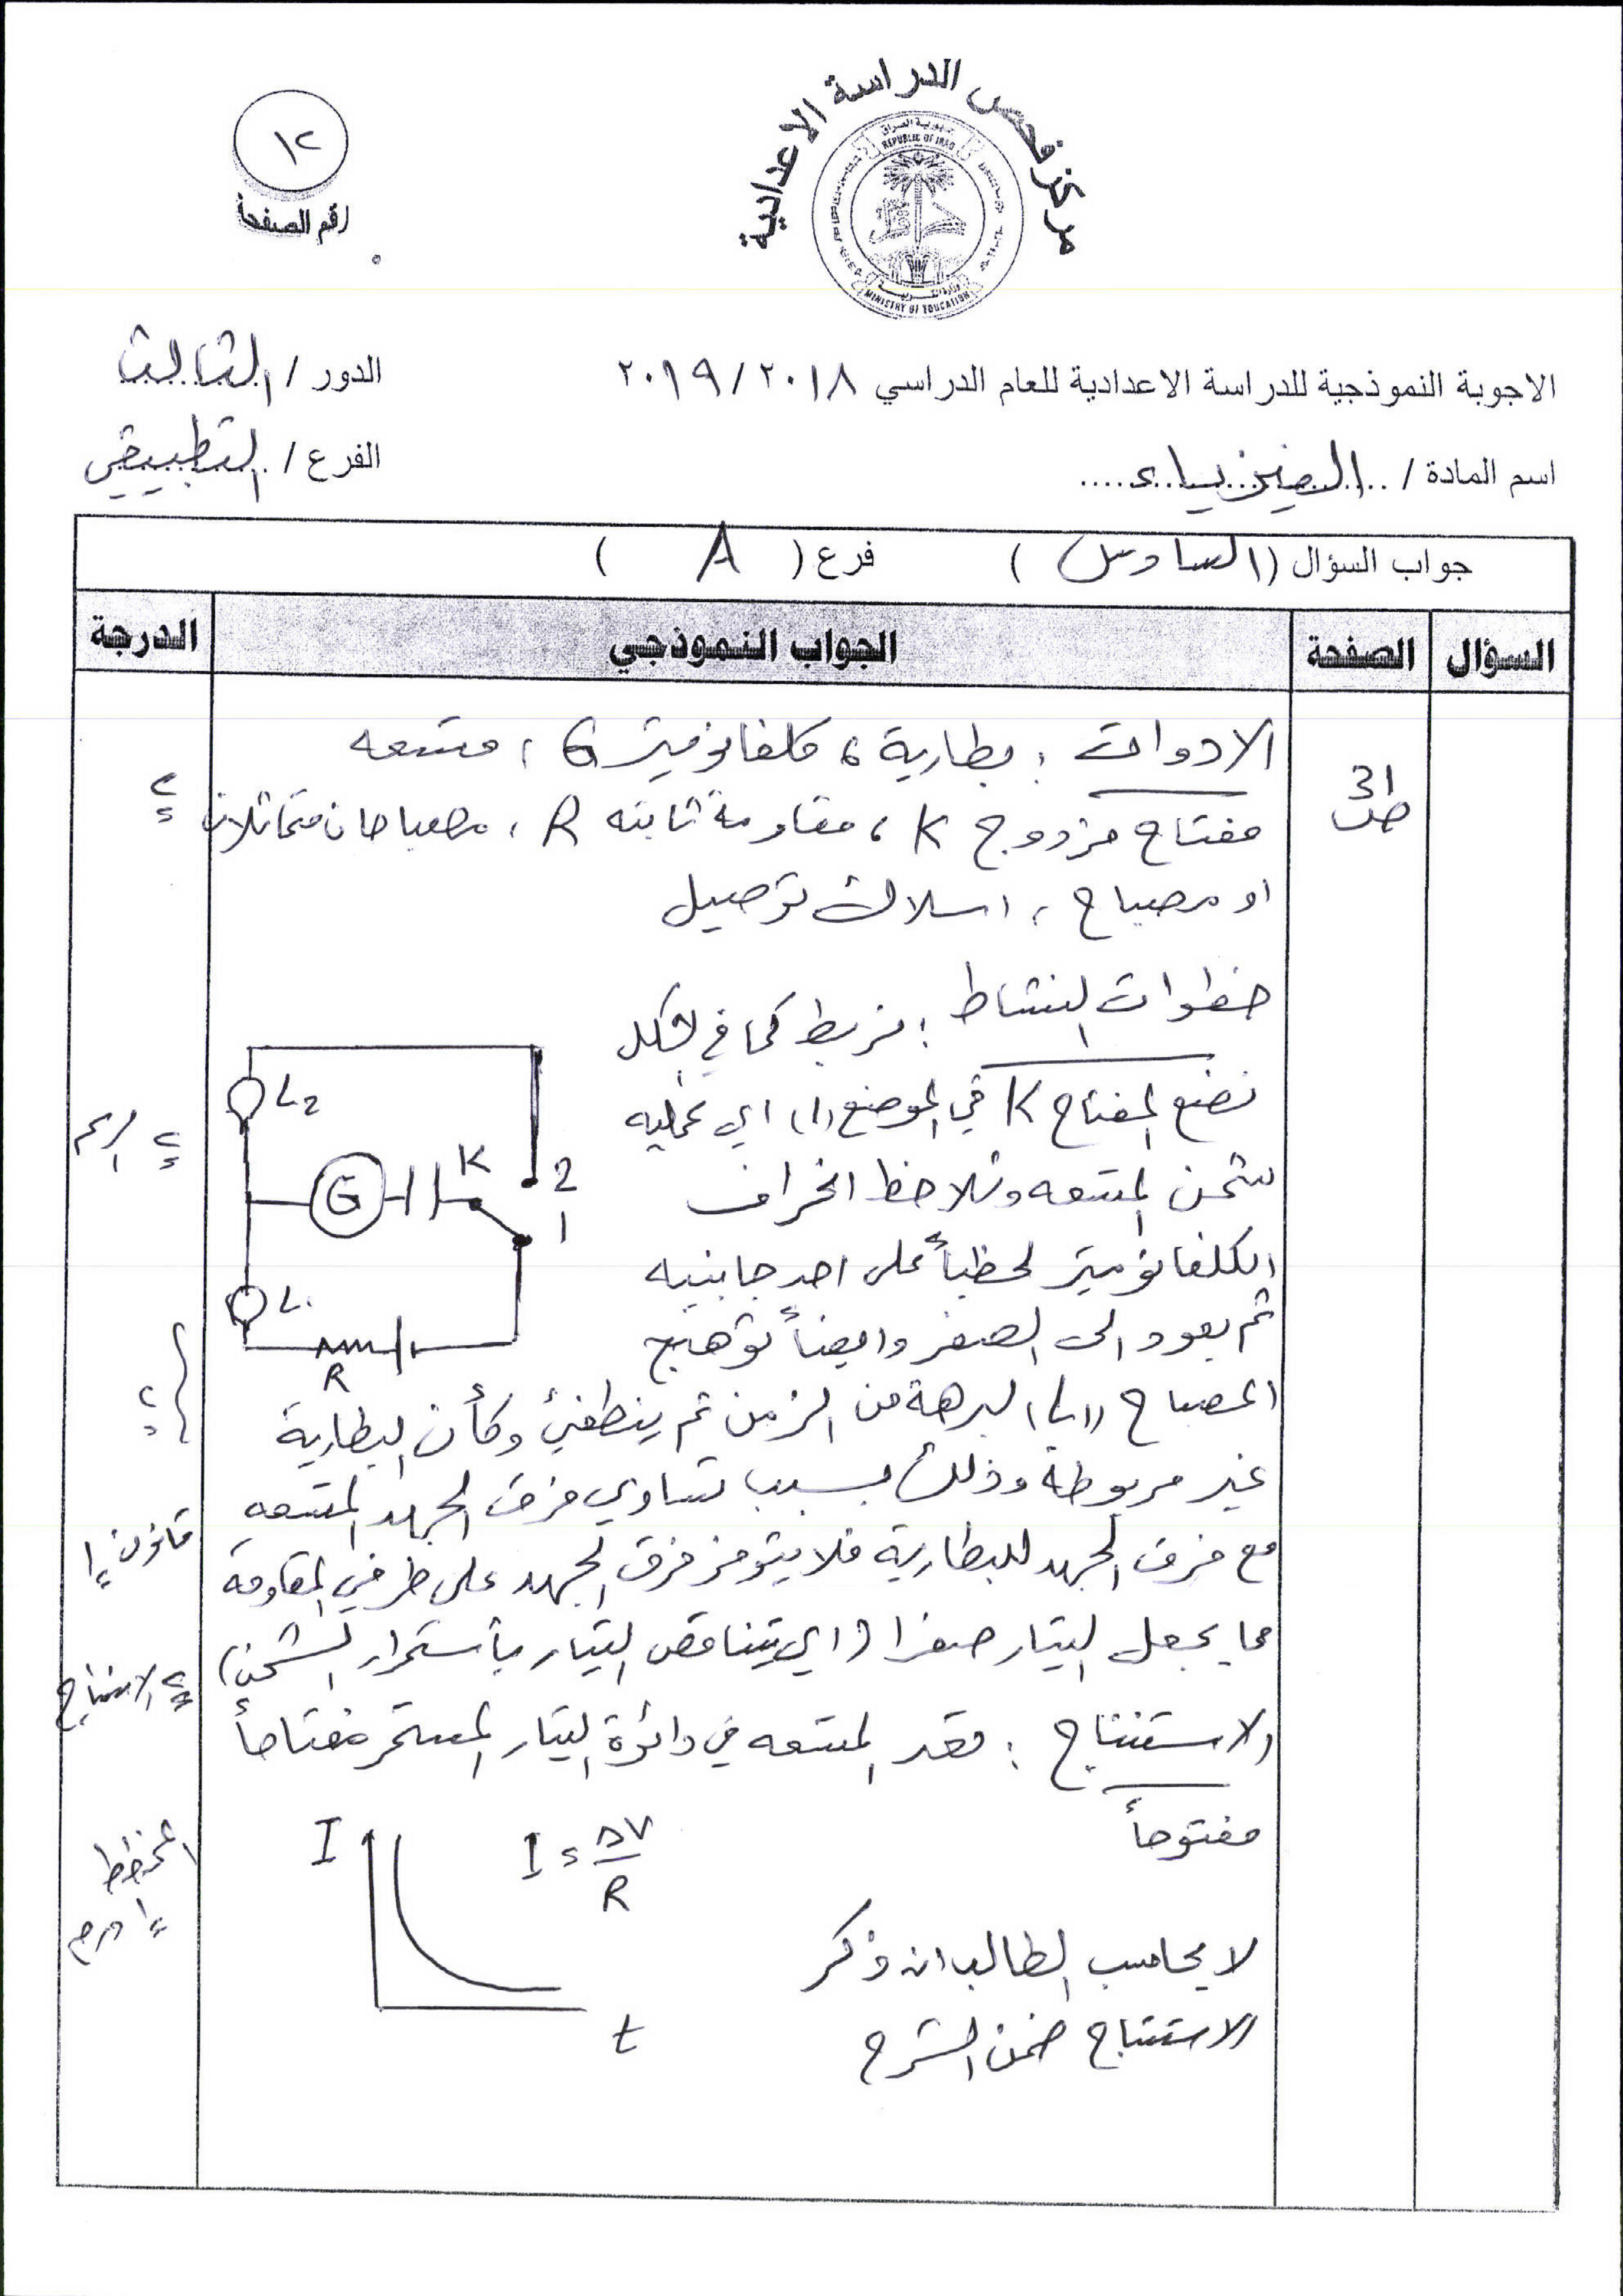 مركز فحص الدراسة الاعدادية
جمهورية العراق
REPUBLIC OF IRAQ
MINISTRY OF EDUCATION
١٢
رقم الصفحة
الاجوبة النموذجية للدراسة الاعدادية للعام الدراسي ٢٠١٨/٢٠١٩
الدور / الثالث
اسم المادة / الفيزياء
الفرع / التطبيقي
جواب السؤال (السادس) فرع ( A )
السؤال الصفحة الجواب النموذجي الدرجة
ص 31
الادوات : بطارية ، كلفانوميتر G ، متسعه
مفتاح مزدوج K ، مقاومة ثابته R ، مصباحان متماثلان
٢
او مصباح ، اسلاك توصيل
خطوات النشاط : نربط كما في الشكل
نضع المفتاح K في الموضع (١) اي عملية
٢ الرسم
شحن المتسعه ونلاحظ انحراف
الكلفانوميتر لحظياً على احد جانبيه
ثم يعود الى الصفر وايضاً توهج
المصباح (L1) لبرهة من الزمن ثم ينطفئ وكأن البطارية
٢
غير مربوطة وذلك بسبب تساوي فرق الجهد المتسعه
مع فرق الجهد للبطارية فلا يتوفر فرق الجهد على طرفي المقاومة
قانون ١
مما يجعل التيار صفرا (اي يتناقص التيار بأستمرار الشحن)
٢ الاستنتاج
الاستنتاج : تعد المتسعه في دائرة التيار المستمر مفتاحاً
مفتوحاً
L2
G
K
2
1
L1
R
I
I = ΔV
R
t
المخطط
١ درجة
لا يحاسب الطالب ان ذكر
الاستنتاج ضمن الشرح